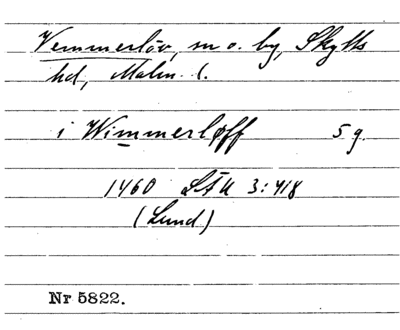 Vemmerlöv, sn o. by, Skytts
hd, Malm. l.
i Wimmerløff 5 g.
1460 LÄU 3:418
(Lund)
Nr 5822.